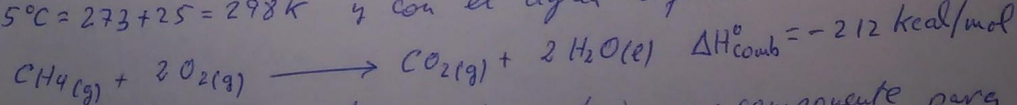 5°C = 273 + 25 = 298 K y con el
CH4(g) + 2 O2(g) ⟶ CO2(g) + 2 H2O(l) ΔH°comb = -212 kcal/mol
para